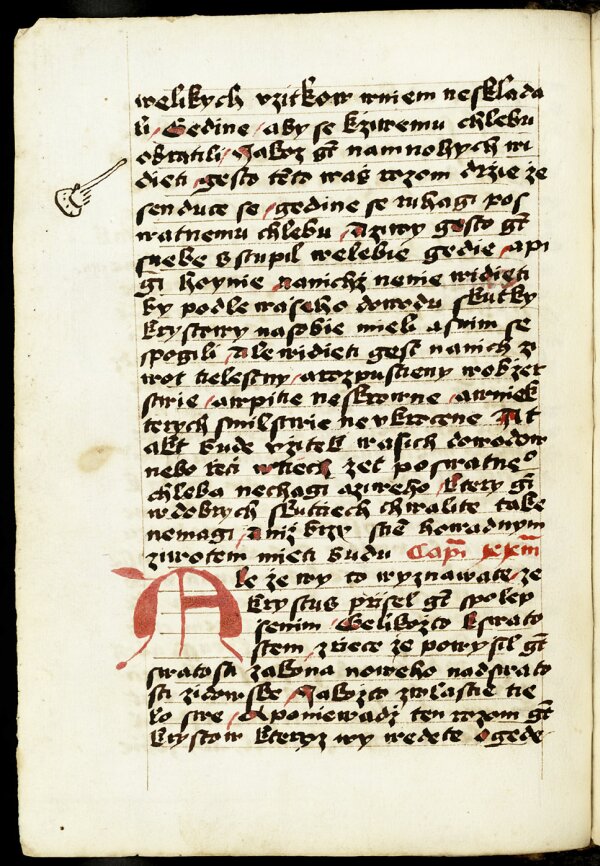 welikych vzitkow wniem nesklada
li / Gedine / aby se kziwemu chlebu
obratili / Jakoz gt namnohych wi
dieti / gesto tento was rozom drzie ze
senduce se / gedine se ruhagi pos
watnemu chlebu / Aziwy gesto gt
snebe stupil welebie gedie / a pi
gi hoynie nanichz nenie widieti
by podle waseho dowodu skutky
krystowy nasobie mieli a snim se
spogili / Ale widieti gest nanich zi
wot tielestny / a rozpustieny w obzer
stwie / a wpitie neskrowne / a wniek
terych smilstwie nevkrocene
bude vzitek wasich dowodow
nebo rzeci wtiech zet poswatne°
chleba nechagi aziweho / ktery gt
w dobrych skutciech chwalite take
nemagi / a niz krzy stie howadnym
ziwotem mieti budu Capi
Ale ze wy to wyznawate / ze
krystus prisel gt spolep
senim / Gelikozto kswato
stem / zriece ze powysil gt
swatosti zakona noweho nadswato
sti zidowske / Jakozto zwlastie tie
lo swe / A poniewadz ten rozom gt
krystow kteryz wy wedete ogede